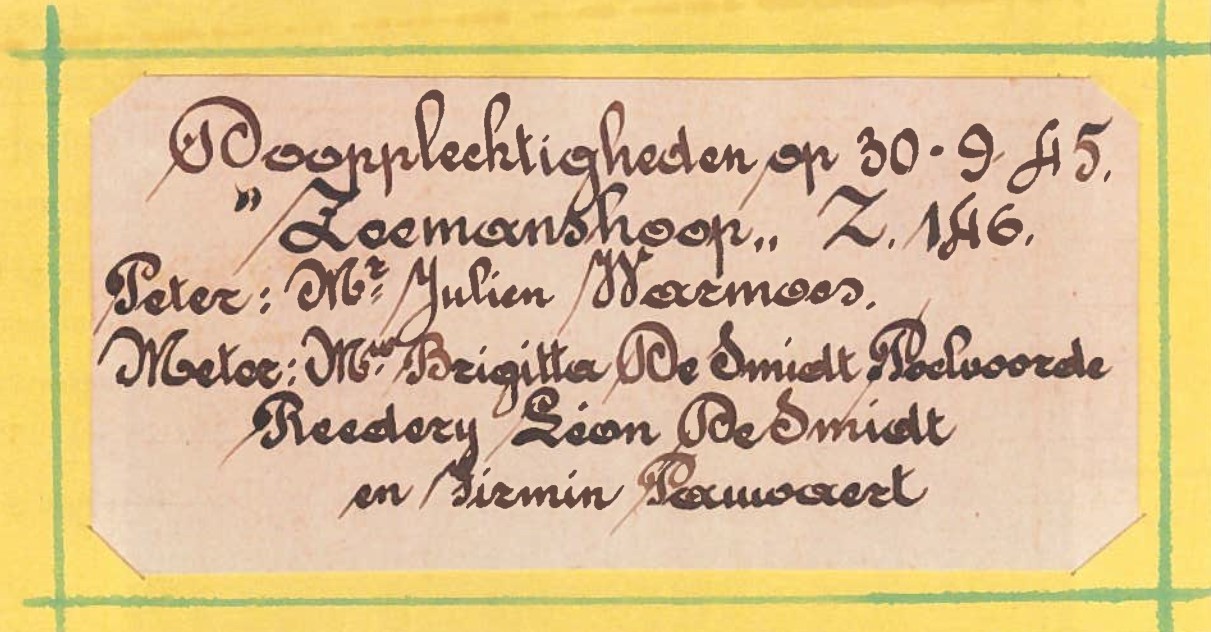 Doopplechtigheden op 30·9 45.
"Zeemanshoop„ Z. 146.
Peter: Mr Julien Warmoes.
Meter: Mw Brigitta De Smidt Poelvoorde
Reedery Léon De Smidt
en Firmin Pauwaert